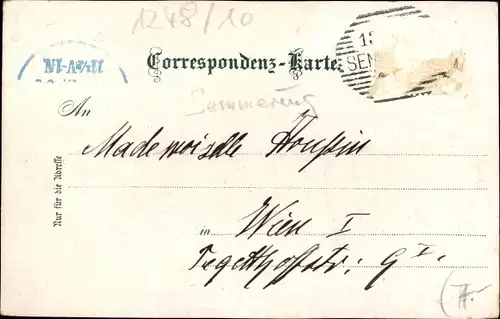 1248/10
Correspondenz-Karte
13
SEM
Semmering
An
Mademoiselle
in Wien I
Tegetthoffstr. 9 I.
Nur für die Adresse